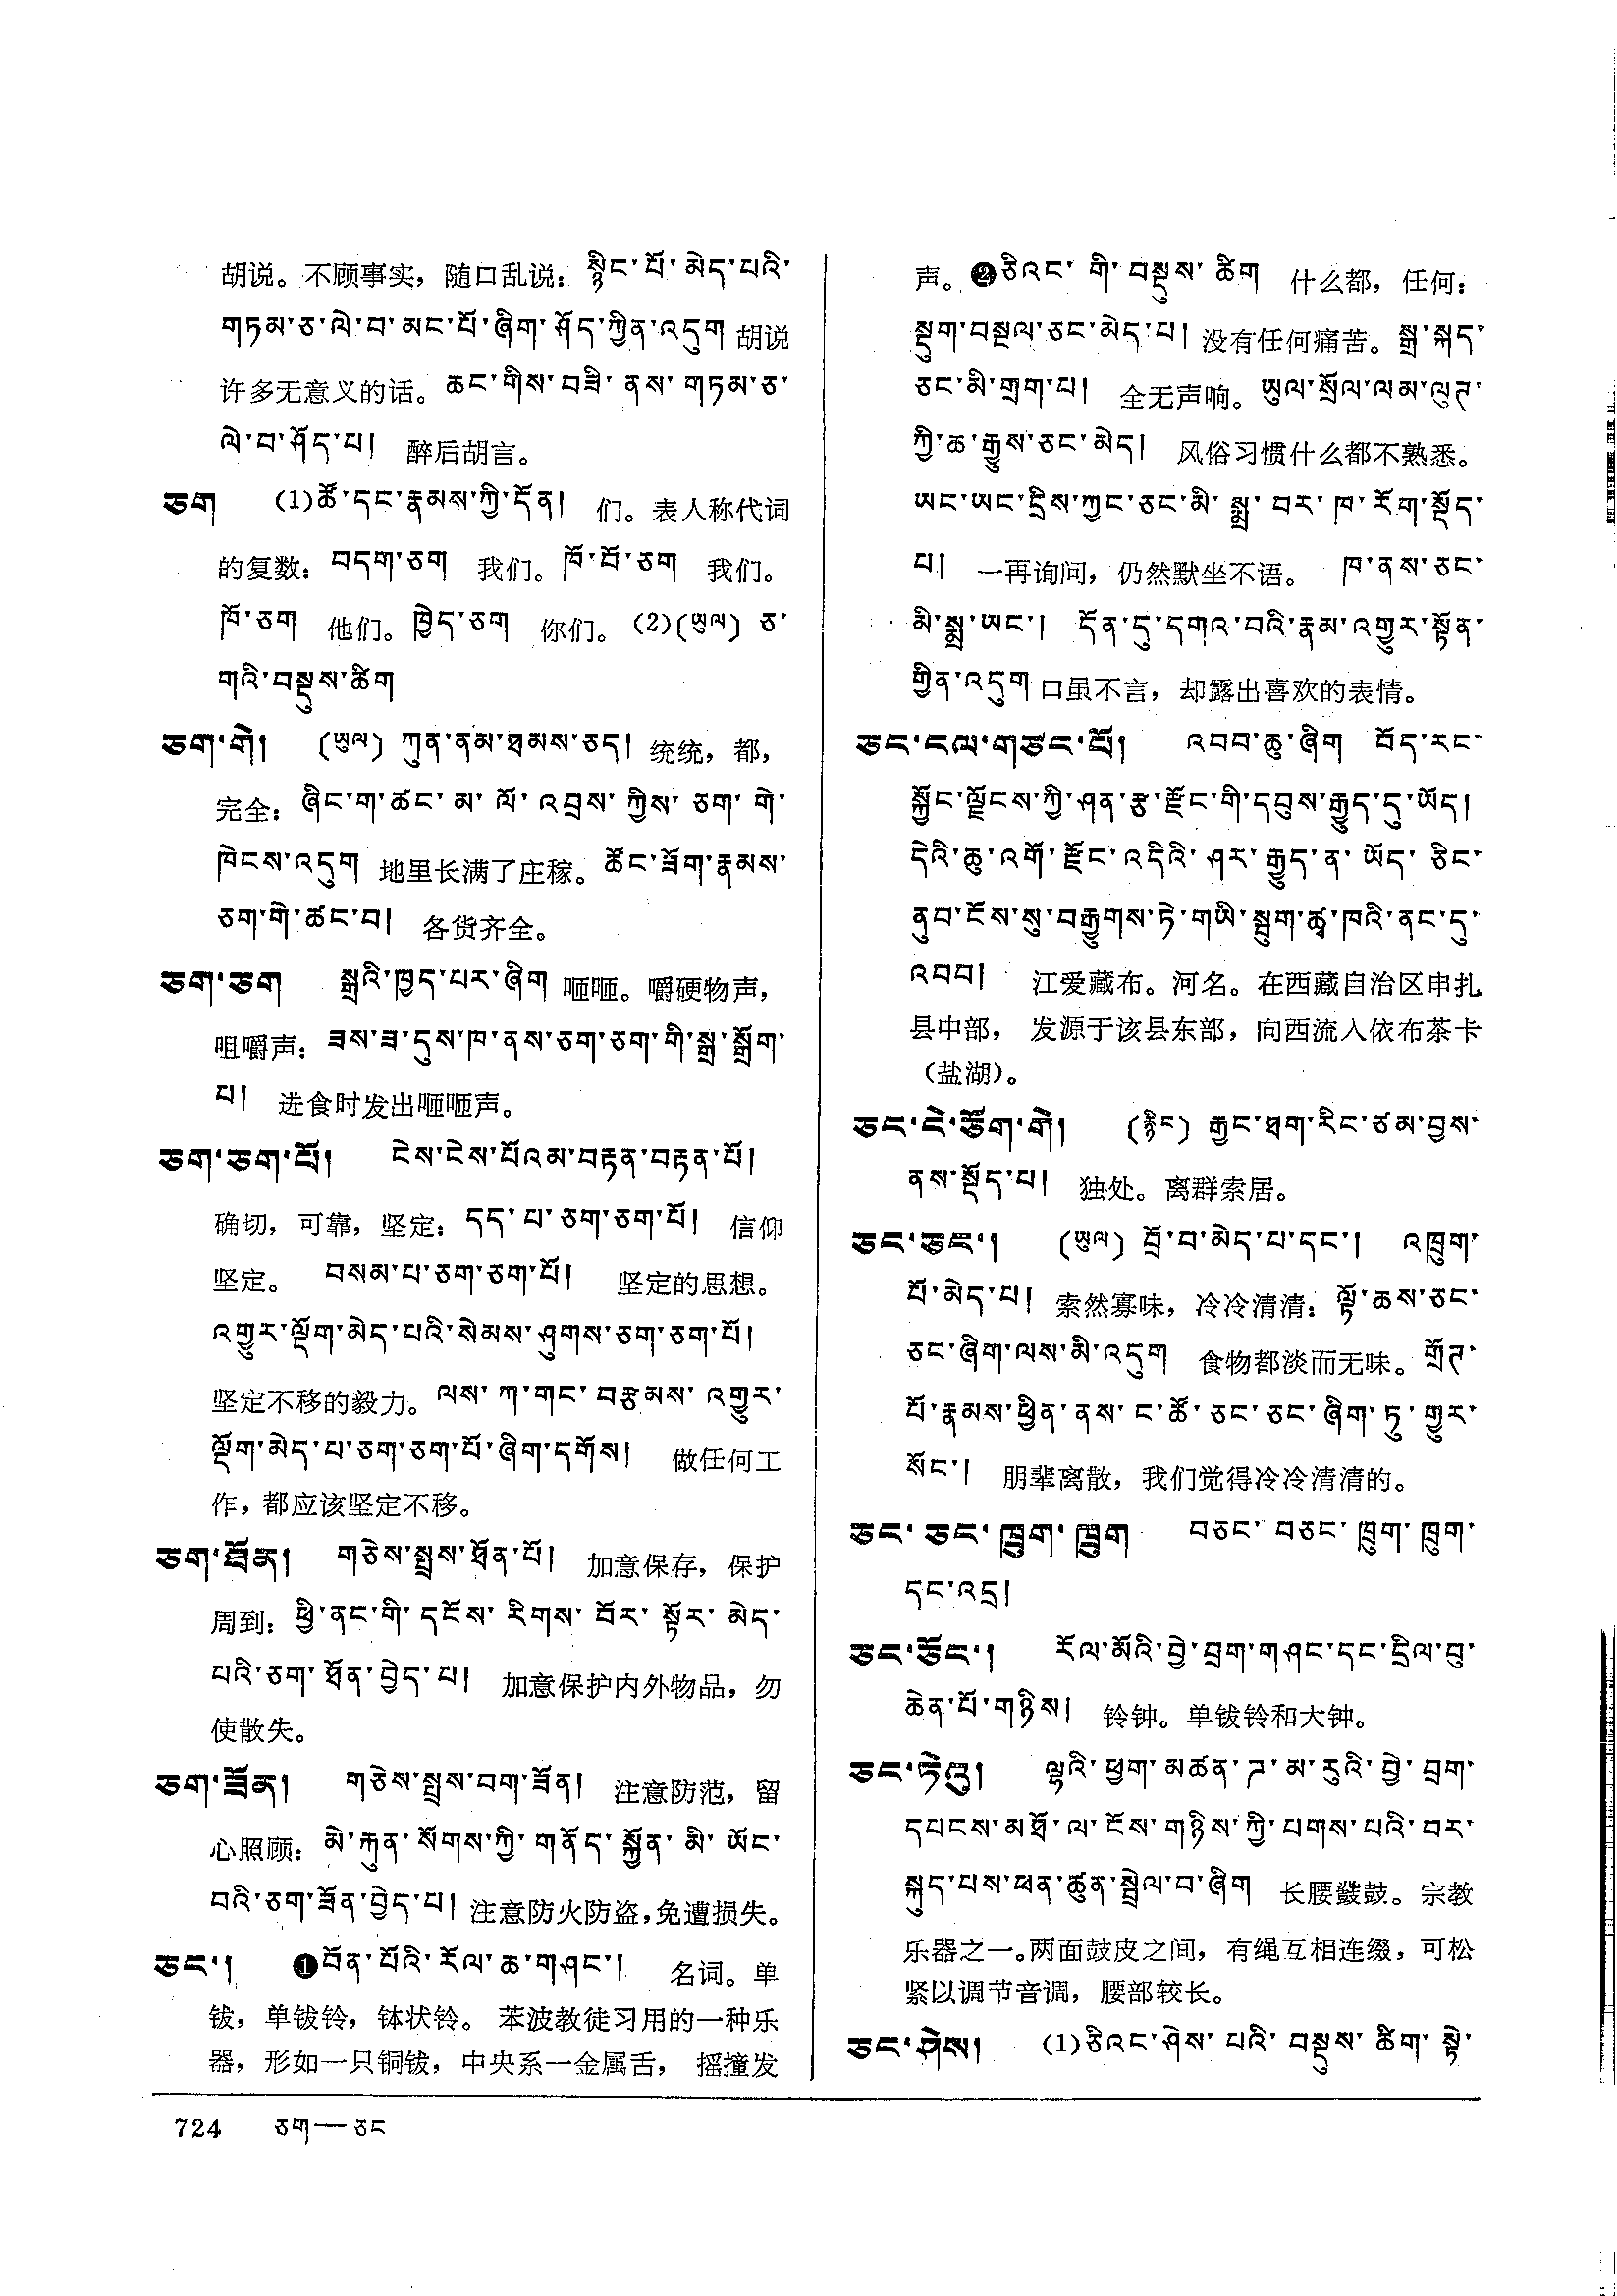 胡说。不顾事实，随口乱说：སྙིང་པོ་མེད་པའི་
གཏམ་ཅ་ལེ་བ་མང་པོ་ཞིག་ཤོད་ཀྱིན་འདུག 胡说
许多无意义的话。ཆང་གིས་བཟི་ནས་གཏམ་ཅ་
ལེ་བ་ཤོད་པ། 醉后胡言。
ཅག (1)ཚོ་དང་རྣམས་ཀྱི་དོན། 们。表人称代词
的复数：བདག་ཅག 我们。ཁོ་བོ་ཅག 我们。
ཁོ་ཅག 他们。ཁྱེད་ཅག 你们。(2)(ཡུལ) ཅ་
གའི་བསྡུས་ཚིག
ཅག་གེ། (ཡུལ) ཀུན་ནམ་ཐམས་ཅད། 统统，都，
完全：ཞིང་ག་ཚང་མ་ལོ་འབྲས་ཀྱིས་ཅག་གེ་
ཁེངས་འདུག 地里长满了庄稼。ཚོང་ཟོག་རྣམས་
ཅག་གེ་ཚང་བ། 各货齐全。
ཅག་ཅག སྒྲའི་ཁྱད་པར་ཞིག 咂咂。嚼硬物声，
咀嚼声：ཟས་ཟ་དུས་ཁ་ནས་ཅག་ཅག་གི་སྒྲ་སྒྲོག་
པ། 进食时发出咂咂声。
ཅག་ཅག་པོ། ངེས་ངེས་པོའམ་བརྟན་བརྟན་པོ།
确切，可靠，坚定：དད་པ་ཅག་ཅག་པོ། 信仰
坚定。 བསམ་པ་ཅག་ཅག་པོ། 坚定的思想。
འགྱུར་ལྡོག་མེད་པའི་སེམས་ཤུགས་ཅག་ཅག་པོ།
坚定不移的毅力。ལས་ཀ་གང་བརྩམས་འགྱུར་
ལྡོག་མེད་པ་ཅག་ཅག་པོ་ཞིག་དགོས། 做任何工
作，都应该坚定不移。
ཅག་ཐོན། གཅེས་སྤྲས་ཐོན་པོ། 加意保存，保护
周到：ཕྱི་ནང་གི་དངོས་རིགས་བོར་སྟོར་མེད་
པའི་ཅག་ཐོན་བྱེད་པ། 加意保护内外物品，勿
使散失。
ཅག་ཟོན། གཅེས་སྤྲས་བག་ཟོན། 注意防范，留
心照顾：མེ་རྐུན་སོགས་ཀྱི་གནོད་སྐྱོན་མི་ཡོང་
བའི་ཅག་ཟོན་བྱེད་པ། 注意防火防盗，免遭损失。
ཅང་། ❶བོན་པོའི་རོལ་ཆ་གཤང་། 名词。单
钹，单钹铃，钵状铃。苯波教徒习用的一种乐
器，形如一只铜钹，中央系一金属舌，摇撞发
声。❷ཅིའང་གི་བསྡུས་ཚིག 什么都，任何：
སྡུག་བསྔལ་ཅང་མེད་པ། 没有任何痛苦。སྒྲ་སྐད་
ཅང་མི་གྲག་པ། 全无声响。ཡུལ་སྲོལ་ལམ་ལུཊ་
ཀྱི་ཆ་རྒྱུས་ཅང་མེད། 风俗习惯什么都不熟悉。
ཡང་ཡང་དྲིས་ཀྱང་ཅང་མི་སྨྲ་བར་ཁ་རོག་སྡོད་
པ། 一再询问，仍然默坐不语。 ཁ་ནས་ཅང་
མི་སྨྲ་ཡང་། དོན་དུ་དགའ་བའི་རྣམ་འགྱུར་སྟོན་
གྱིན་འདུག 口虽不言，却露出喜欢的表情。
ཅང་ངལ་གཙང་པོ། འབབ་ཆུ་ཞིག བོད་རང་
སྐྱོང་ལྗོངས་ཀྱི་ཤན་རྩ་རྫོང་གི་དབུས་རྒྱུད་དུ་ཡོད།
དེའི་ཆུ་འགོ་རྫོང་འདིའི་ཤར་རྒྱུད་ན་ཡོད་ཅིང་
ནུབ་ངོས་སུ་བརྒྱུགས་ཏེ་གཡི་སྦུག་ཚྭ་ཁའི་ནང་དུ་
འབབ། 江爱藏布。河名。在西藏自治区申扎
县中部，发源于该县东部，向西流入依布茶卡
（盐湖）。
ཅང་ངེ་ཙོག་གེ། (རྙིང) རྒྱང་ཐག་རིང་ཙམ་བྱས་
ནས་སྡོད་པ། 独处。离群索居。
ཅང་ཅང་། (ཡུལ) བྲོ་བ་མེད་པ་དང་། འཁྲུག་
པོ་མེད་པ། 索然寡味，冷冷清清：ལྟོ་ཆས་ཅང་
ཅང་ཞིག་ལས་མི་འདུག 食物都淡而无味。གྲོཊ་
པོ་རྣམས་ཕྱིན་ནས་ང་ཚོ་ཅང་ཅང་ཞིག་ཏུ་གྱུར་
སོང་། 朋辈离散，我们觉得冷冷清清的。
ཅང་ཅང་ཁྲུག་ཁྲུག བཅང་བཅང་ཁྲུག་ཁྲུག་
དང་འདྲ།
ཅང་ཅོང་། རོལ་མོའི་བྱེ་བྲག་གཤང་དང་དྲིལ་བུ་
ཆེན་པོ་གཉིས། 铃钟。单钹铃和大钟。
ཅང་ཏེའུ། ལྷའི་ཕྱག་མཚན་ཌ་མ་རུའི་བྱེ་བྲག་
དཔངས་མཐོ་ལ་ངོས་གཉིས་ཀྱི་པགས་པའི་བར་
སྐུད་པས་ཕན་ཚུན་སྦྲེལ་བ་ཞིག 长腰鼗鼓。宗教
乐器之一。两面鼓皮之间，有绳互相连缀，可松
紧以调节音调，腰部较长。
ཅང་ཤེས། (1)ཅིའང་ཤེས་པའི་བསྡུས་ཚིག་སྟེ་
724 ཅག—ཅང